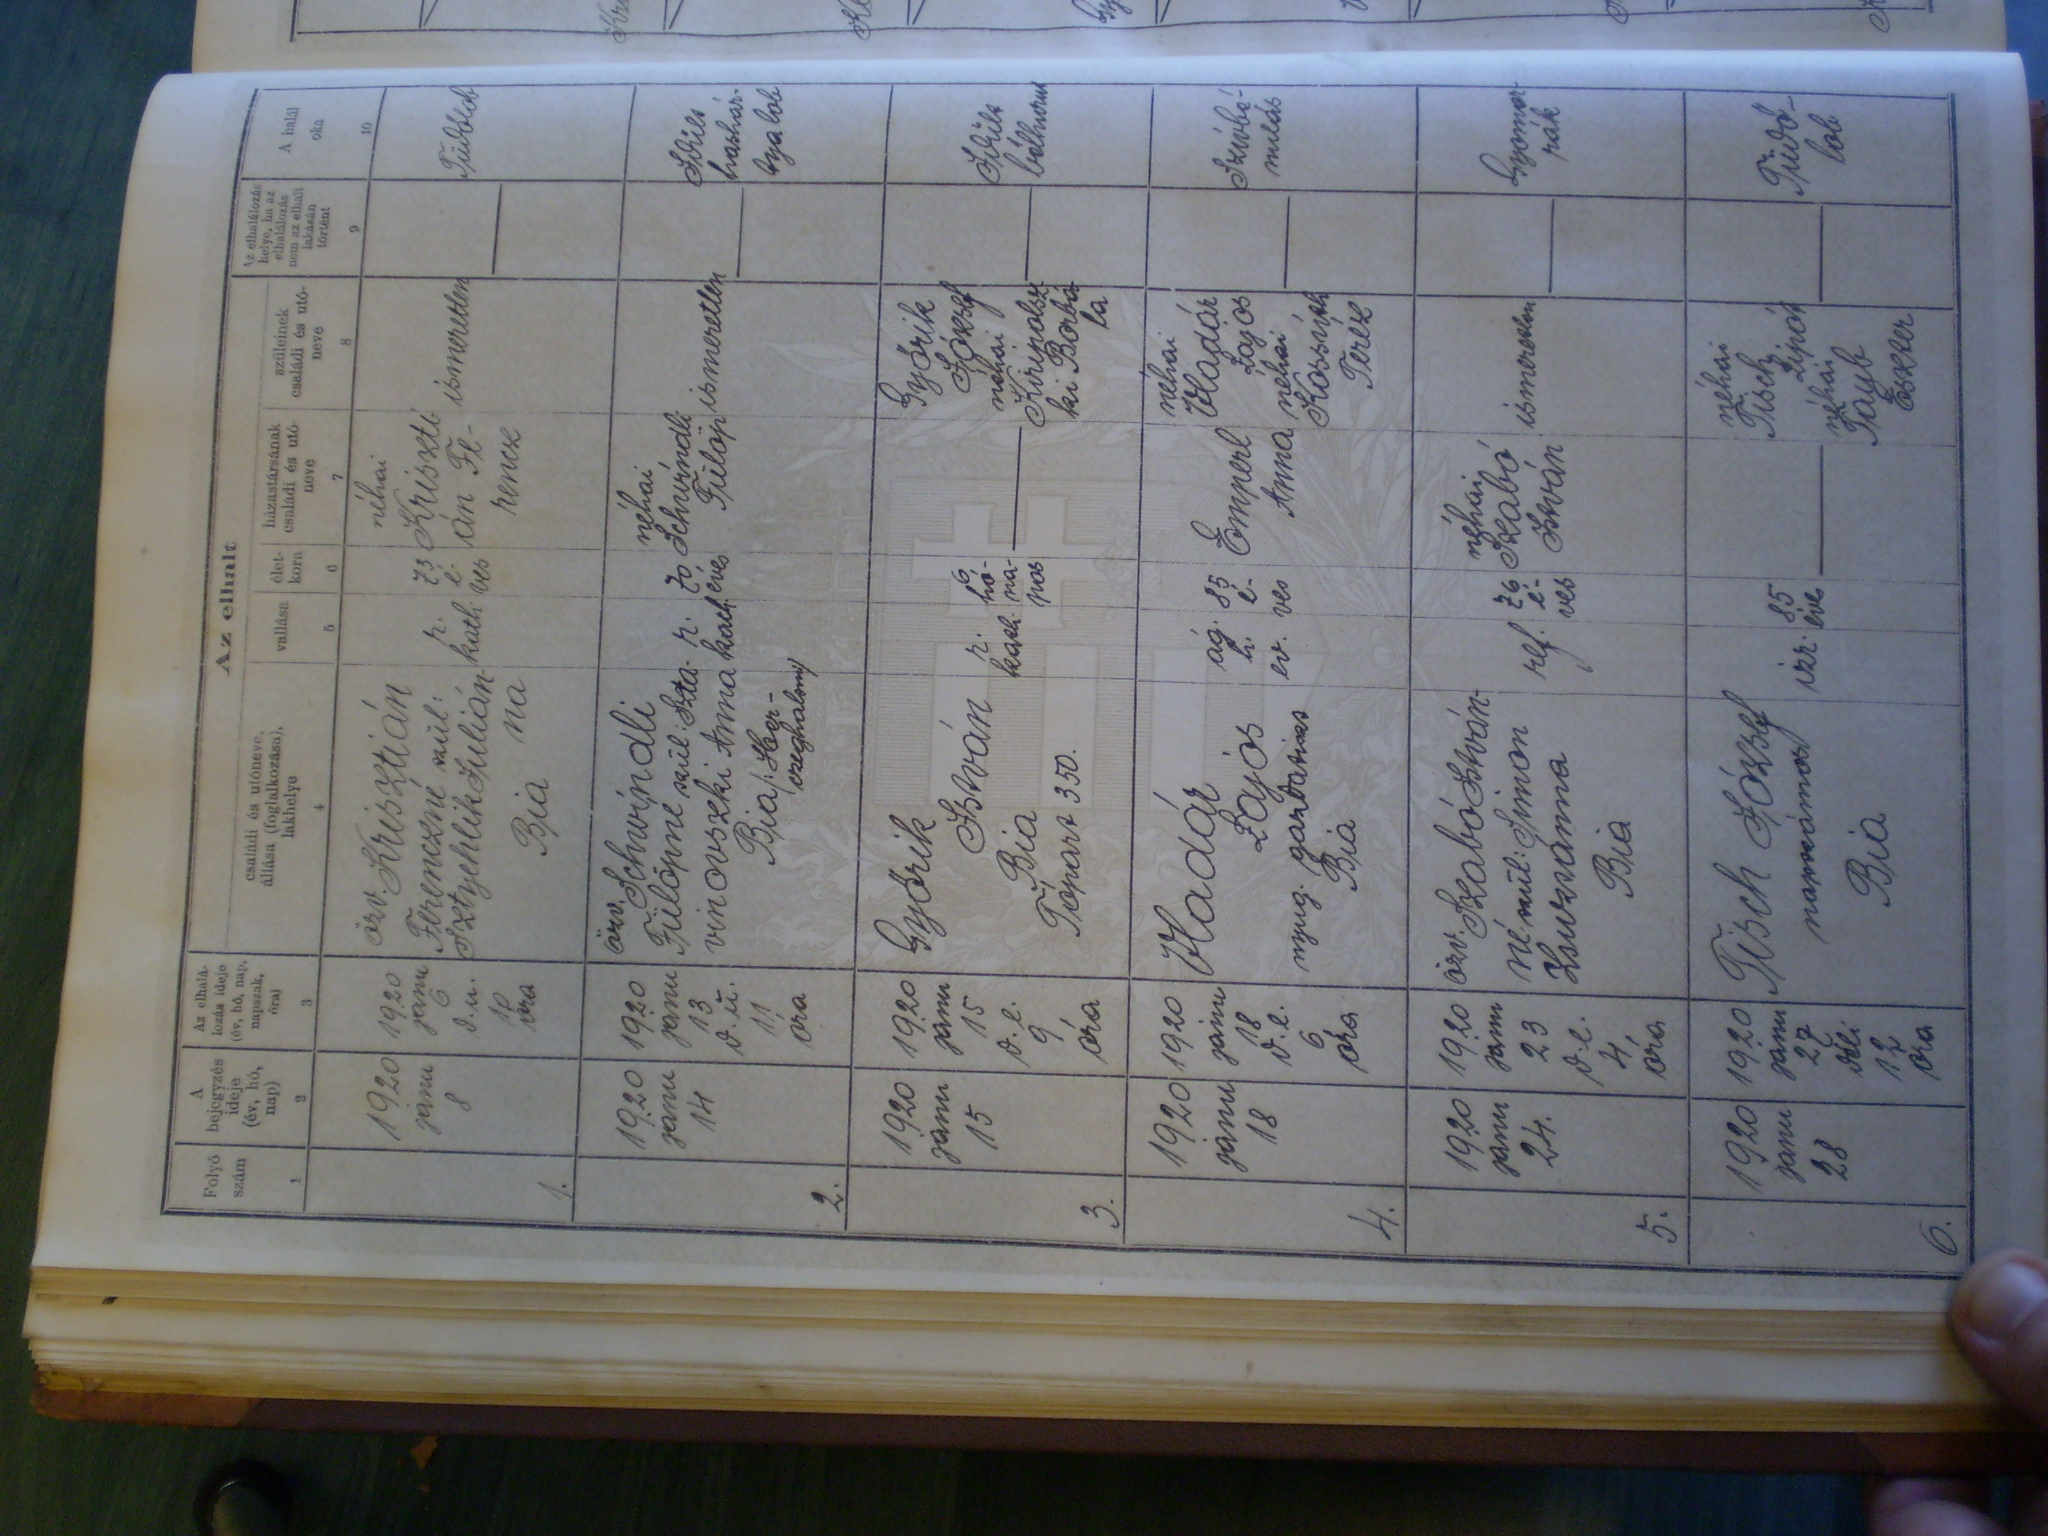 Az elhalt
Folyó
szám
A
bejegyzés
ideje
(év, hó,
nap)
Az elhalá-
lozás ideje
(év, hó, nap,
napszak,
óra)
családi és utóneve,
állása (foglalkozása),
lakhelye
vallása
élet-
kora
házastársának
családi és utó-
neve
szüleinek
családi és utó-
neve
Az elhalálozás
helye, ha az
elhalálozás
nem az elhalt
lakásán
történt
A halál
oka
1
2
3
4
5
6
7
8
9
10
1.
1920
janu
8
1920
janu
6
d.u.
12
óra
özv. Krisztián
Ferenczné szül:
Sztyehlik Julián
na
Bia
r.
kath.
73
é-
ves
néhai
Kriszti
án Fe-
rencz
ismeretlen
Tüdőlob
2.
1920
janu
14
1920
janu
13
d.u.
11
óra
özv. Schvindli
Fülöpné szül: Szta-
vinovszki Anna
Bia /: Her-
czeghalom/
r.
kath.
70
éves
néhai
Schvindli
Fülöp
ismeretlen
Idült
hashár-
tya lob
3.
1920
janu
15
1920
janu
15
d.e.
9
óra
Győrik
István
Bia
Tópart 350.
r.
kath.
6
hó-
na-
pos
Győrik
József
néhai
Kiripolsz
ki Borbá
la
Idült
bélhurut
4.
1920
janu
18
1920
janu
18
d.e.
6
óra
Vladár
Lajos
nyug. gazdatiszt
Bia
ág.
h.
ev.
85
é-
ves
Emperl
Anna
néhai
Vladár
Lajos
néhai
Kossiák
Teréz
Szívbé-
nulás
5.
1920
janu
24.
1920
janu
23
d.e.
4
óra
özv. Szabó István-
né szül: Simon
Zsuzsánna
Bia
ref.
76
é-
ves
néhai
Szabó
István
ismeretlen
Gyomor-
rák
6.
1920
janu
28
1920
janu
27
déli
12
óra
Tisch József
Bia
izr.
85
éves
néhai
Tisch
Lipót
néhai
Taub
Eszter
Tüdő-
lob